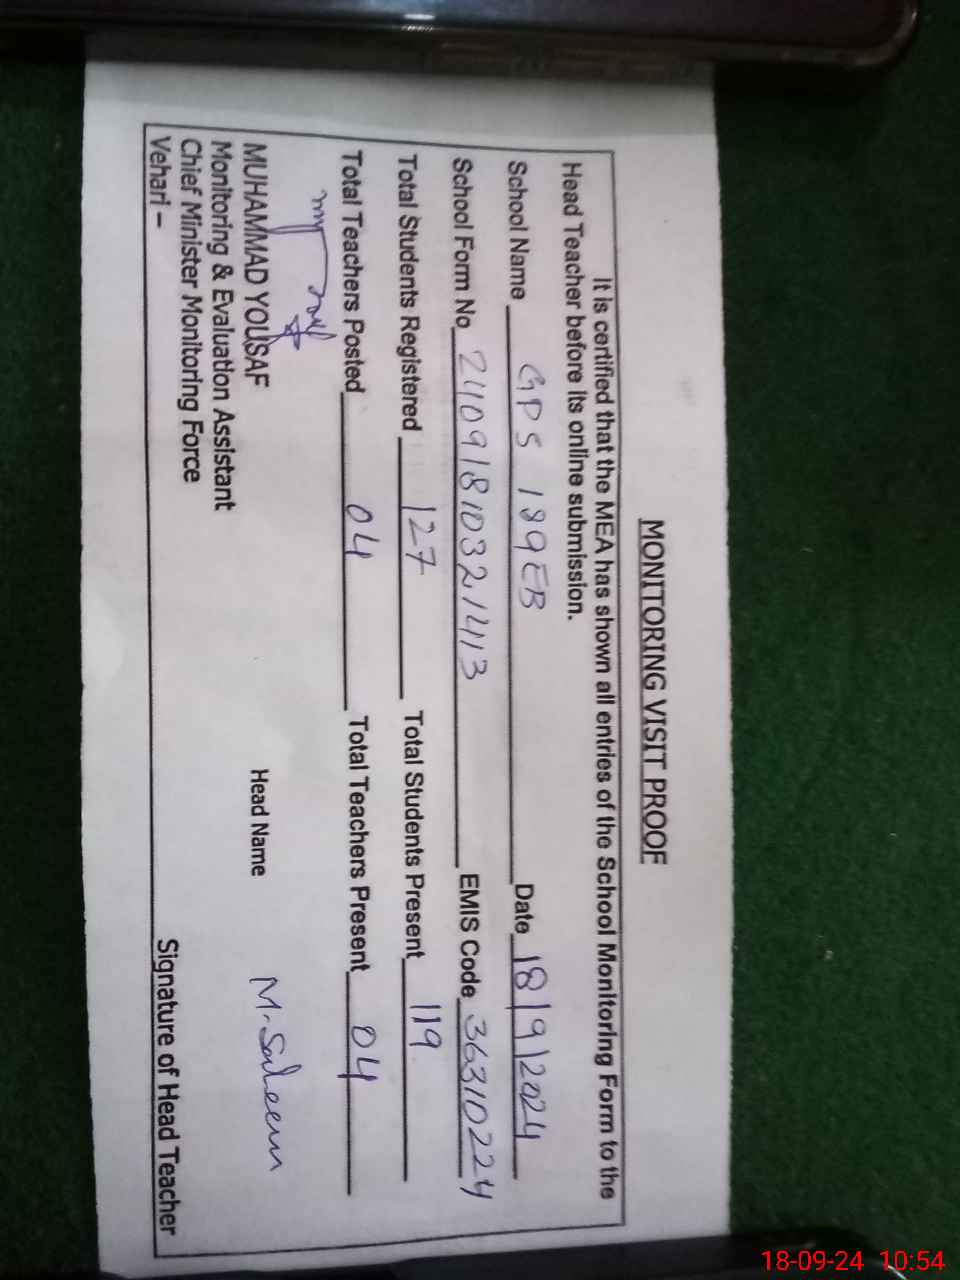 MONITORING VISIT PROOF
It is certified that the MEA has shown all entries of the School Monitoring Form to the
Head Teacher before its online submission.
School Name GPS 189EB Date 18/9/2024
School Form No 24091810321413 EMIS Code 36310224
Total Students Registered 127 Total Students Present 119
Total Teachers Posted 04 Total Teachers Present 04
MUHAMMAD YOUSAF Head Name M. Saleem
Monitoring & Evaluation Assistant
Chief Minister Monitoring Force
Vehari –
Signature of Head Teacher
18-09-24 10:54